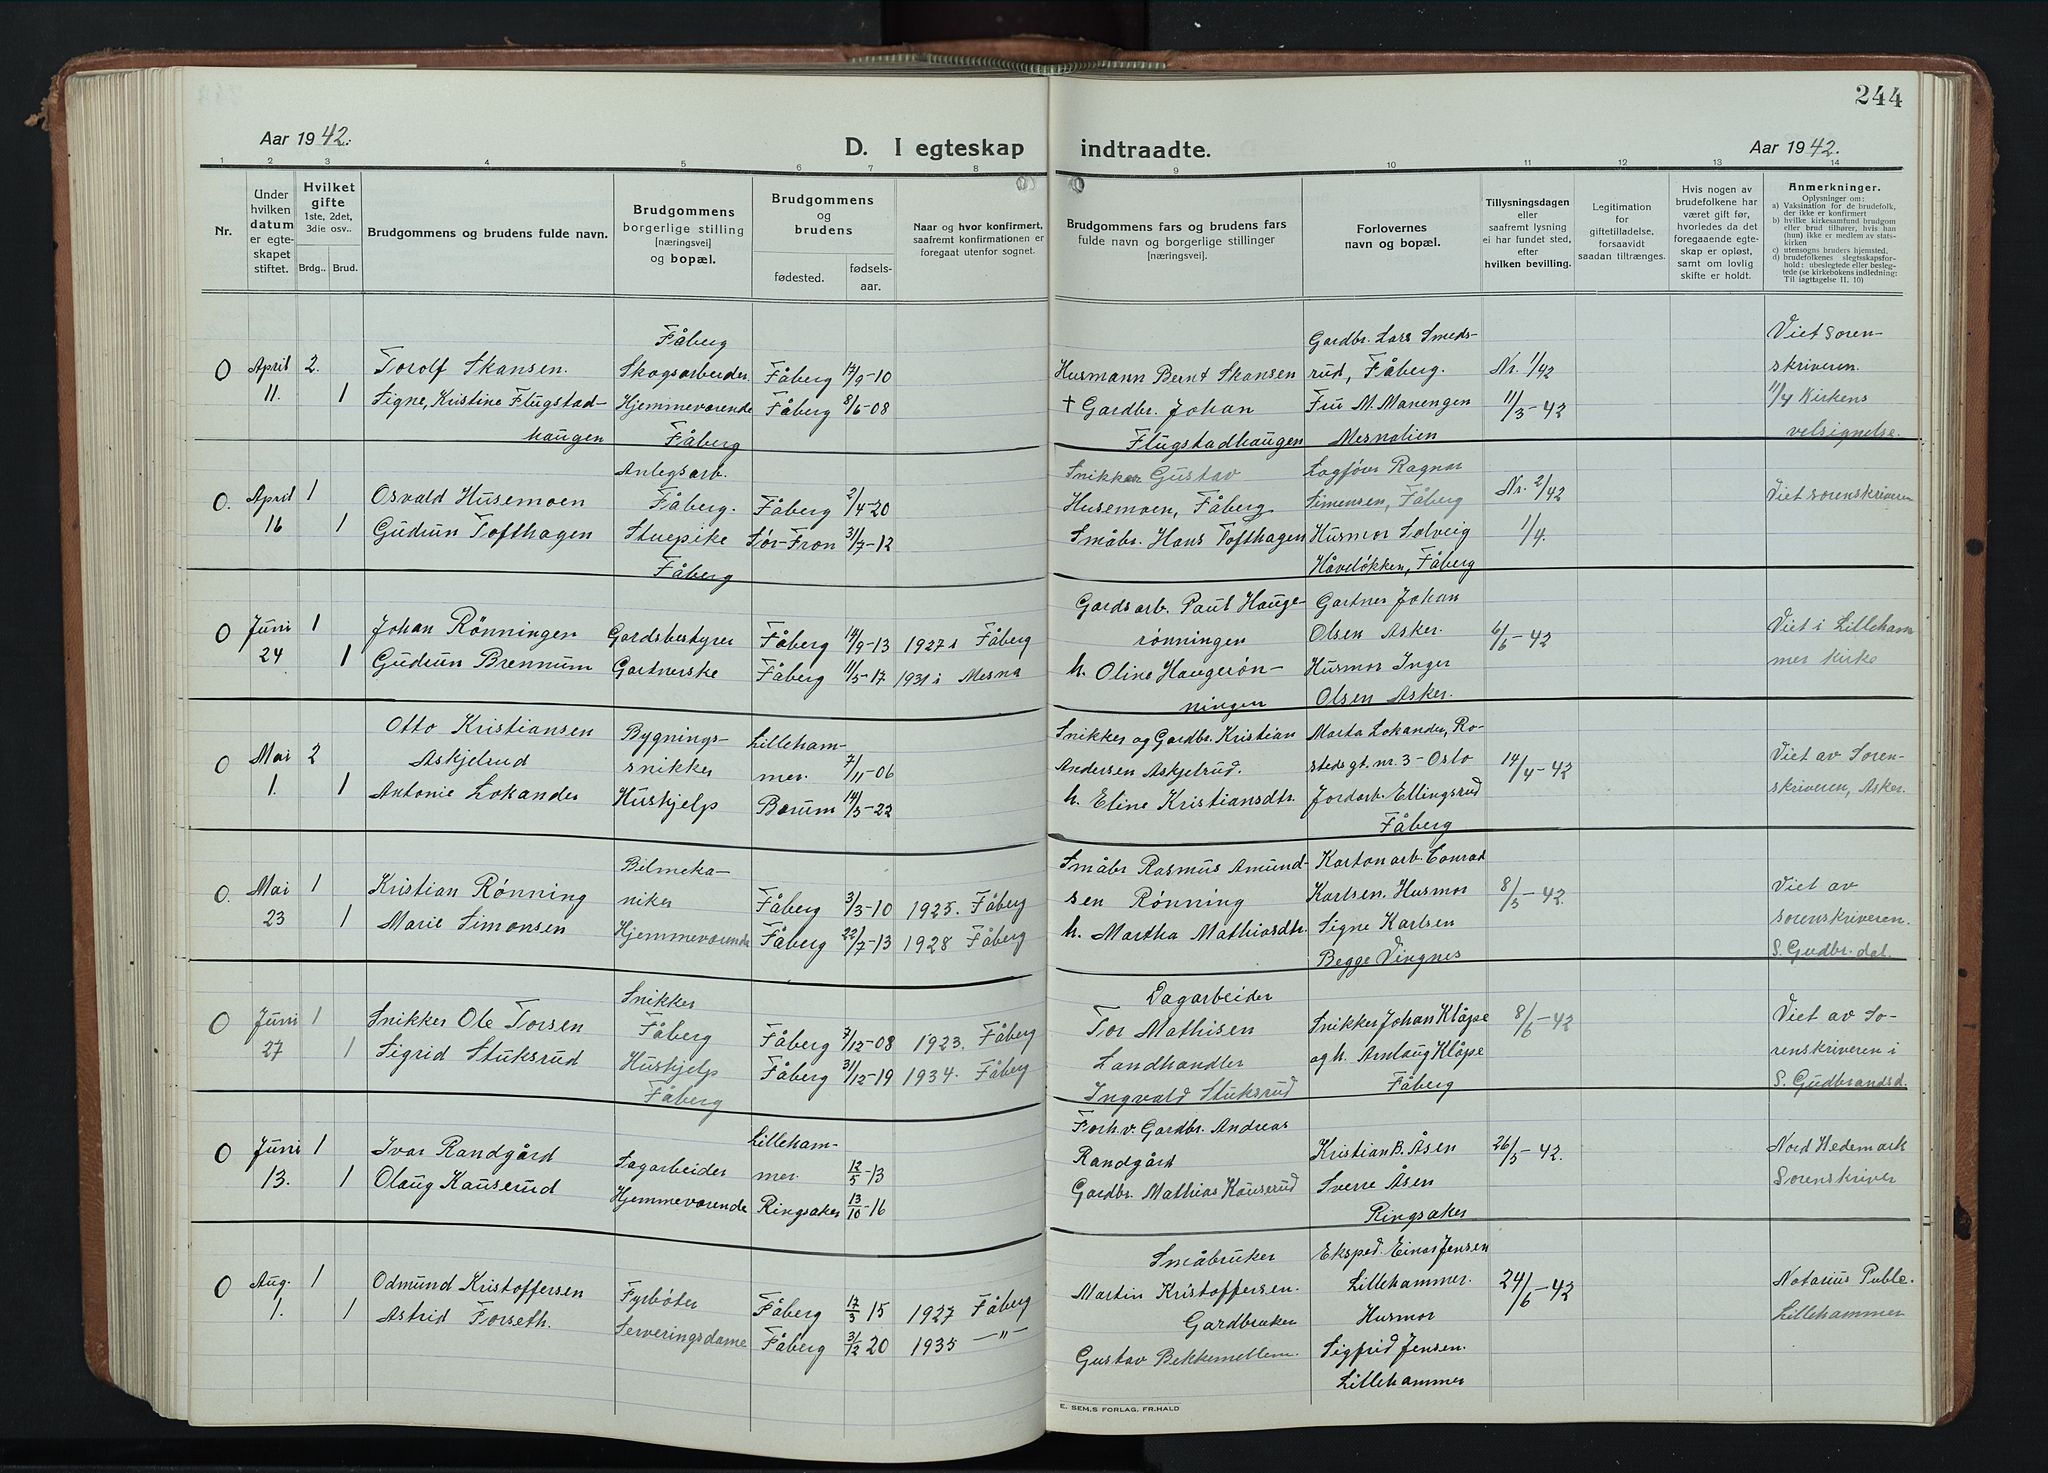 244
Aar 1942.
D. I egteskap indtraadte.
Aar 1942.
1 2 3 4 5 6 7 8 9 10 11 12 13 14
Nr.
Under hvilken datum er egte-skapet stiftet.
Hvilket gifte 1ste, 2det, 3die osv..
Brdg.. Brud.
Brudgommens og brudens fulde navn.
Brudgommens borgerlige stilling [næringsvei] og bopæl.
Brudgommens og brudens
fødested.
fødsels-aar.
Naar og hvor konfirmert, saafremt konfirmationen er foregaat utenfor sognet.
Brudgommens fars og brudens fars fulde navn og borgerlige stillinger [næringsvei].
Forlovernes navn og bopæl.
Tillysningsdagen eller saafremt lysning ei har fundet sted, efter hvilken bevilling.
Legitimation for giftetilladelse, forsaavidt saadan tiltrænges.
Hvis nogen av brudefolkene har været gift før, hvorledes da det foregaaende egte-skap er opløst, samt om lovlig skifte er holdt.
Anmerkninger.
Oplysninger om:
a) Vaksination for de brudefolk, der ikke er konfirmert
b) hvilke kirkesamfund brudgom eller brud tilhører, hvis han (hun) ikke er medlem av stats-kirken
c) utensogns bruders hjemsted.
d) brudefolkenes slegtsskapsfor-hold: ubeslegtede eller besleg-tede (se kirkebokens indledning: Til iagttagelse II, 10)
Fåberg Gardbr. Lars Smeds- Viet soren-
0 April 2. Torolf Skansen. Skogsarbeider Fåberg 17/9-10 Husmann Bernt Skansen rud, Fåberg. Nr. 1/42 skriveren.
11. 1 Signe, Kristine Flugstad- Hjemmeværende Fåberg 8/6-08 † Gardbr. Johan Fru M. Manengen 11/3-42 11/4 Kirkens
haugen Fåberg Flugstadhaugen Mesnalien velsignelse.
Anlegsarb. Snikker Gustav Lagfører Ragnar
0. April 1 Osvald Husemoen Fåberg. Fåberg 2/4-20 Husemoen, Fåberg Simensen, Fåberg Nr. 2/42 Viet sorenskriveren
16 1 Gudrun Tofthagen Stuepike Sør-Fron 31/7-12 Småbr. Hans Tofthagen Husmor Solveig 1/4.
Fåberg Håveløkken, Fåberg
Gardsarb. Paul Hauge- Gartner Johan
0 Juni 1 Johan Rønningen Gardsbestyrer Fåberg 14/9-13 1927 i Fåberg rønningen Olsen Asker. 6/6-42 Viet i Lilleham
24 1 Gudrun Brennum Gartnerske Fåberg 11/5-17 1931 i Mesna h. Oline Haugerøn- Husmor Inger mer kirke
ningen Olsen Asker.
Otto Kristiansen Bygnings- Lilleham- Snikker og Gardbr. Kristian Marta Lokander, Ro-
0 Mai 2 Askjelrud snikker mer. 7/11-06 Andersen Askjelrud. stedsgt. nr. 3-Oslo 14/4-42 Viet av Soren-
1. 1 Antonie Lokander Huskjelp Bærum 14/3-22 h. Eline Kristiansdtr. Jordarb. Ellingsrud skriveren, Asker.
Fåberg
Bilmeka- Småbr Rasmus Amund- Kartonarb. Conrad
0. Mai 1 Kristian Rønning niker Fåberg 3/3-10 1925. Fåberg sen Rønning Karlsen. Husmor 8/5-42. Viet av
23 1 Marie Simonsen Hjemmeværende Fåberg 22/7-13 1928 Fåberg h. Martha Mathiasdtr. Signe Karlsen sorenskriveren.
Begge Vingnes S. Gudbr. dal.
Snikker Dagarbeider
0 Juni 1 Snikker Ole Torsen Fåberg Fåberg 7/12-08 1923. Fåberg Tor Mathisen Snikker Johan Klåpe 8/6-42 Viet av So-
27 1 Sigrid Stuksrud Huskjelp Fåberg 31/12-19 1934. Fåberg Landhandler og h. Arnlaug Klåpe renskriveren i
Fåberg Ingvald Stuksrud Fåberg S. Gudbrandsd.
Lilleham- Forh.v. Gardbr. Andreas
0 Juni 1 Ivar Randgård Sagarbeider mer. 12/5-13 Randgård Kristian B. Åsen 26/5-42. Nord Hedemark
13. 1 Olaug Kauserud Hjemmeværende Ringsaker 13/10-16 Gardbr. Mathias Kauserud Sverre Åsen Sorenskriver
Ringsaker
Småbruker Eksped. Einar Jensen
0 Aug. 1 Odmund Kristoffersen Fyrbøter Fåberg 17/3 15 1927 Fåberg Martin Kristoffersen. Lillehammer. 24/6-42 Notarius Puble.
1. 1 Astrid Forseth. Serveringsdame Fåberg 31/12 20 1935 —"— Gardbruker Husmor Lillehammer
Gustav Bekkemellem. Sigfrid Jensen.
Lillehammer
E. SEM,S FORLAG, FR.HALD